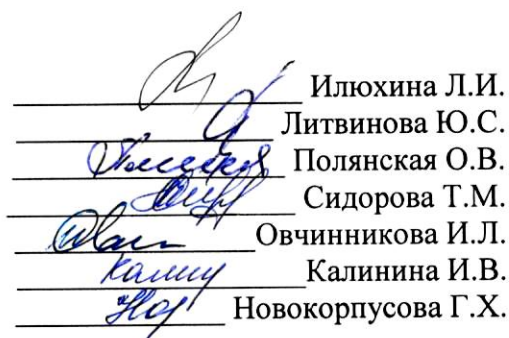 Илюхина Л.И.
Литвинова Ю.С.
Полянская О.В.
Сидорова Т.М.
Овчинникова И.Л.
Калинина И.В.
Новокорпусова Г.Х.